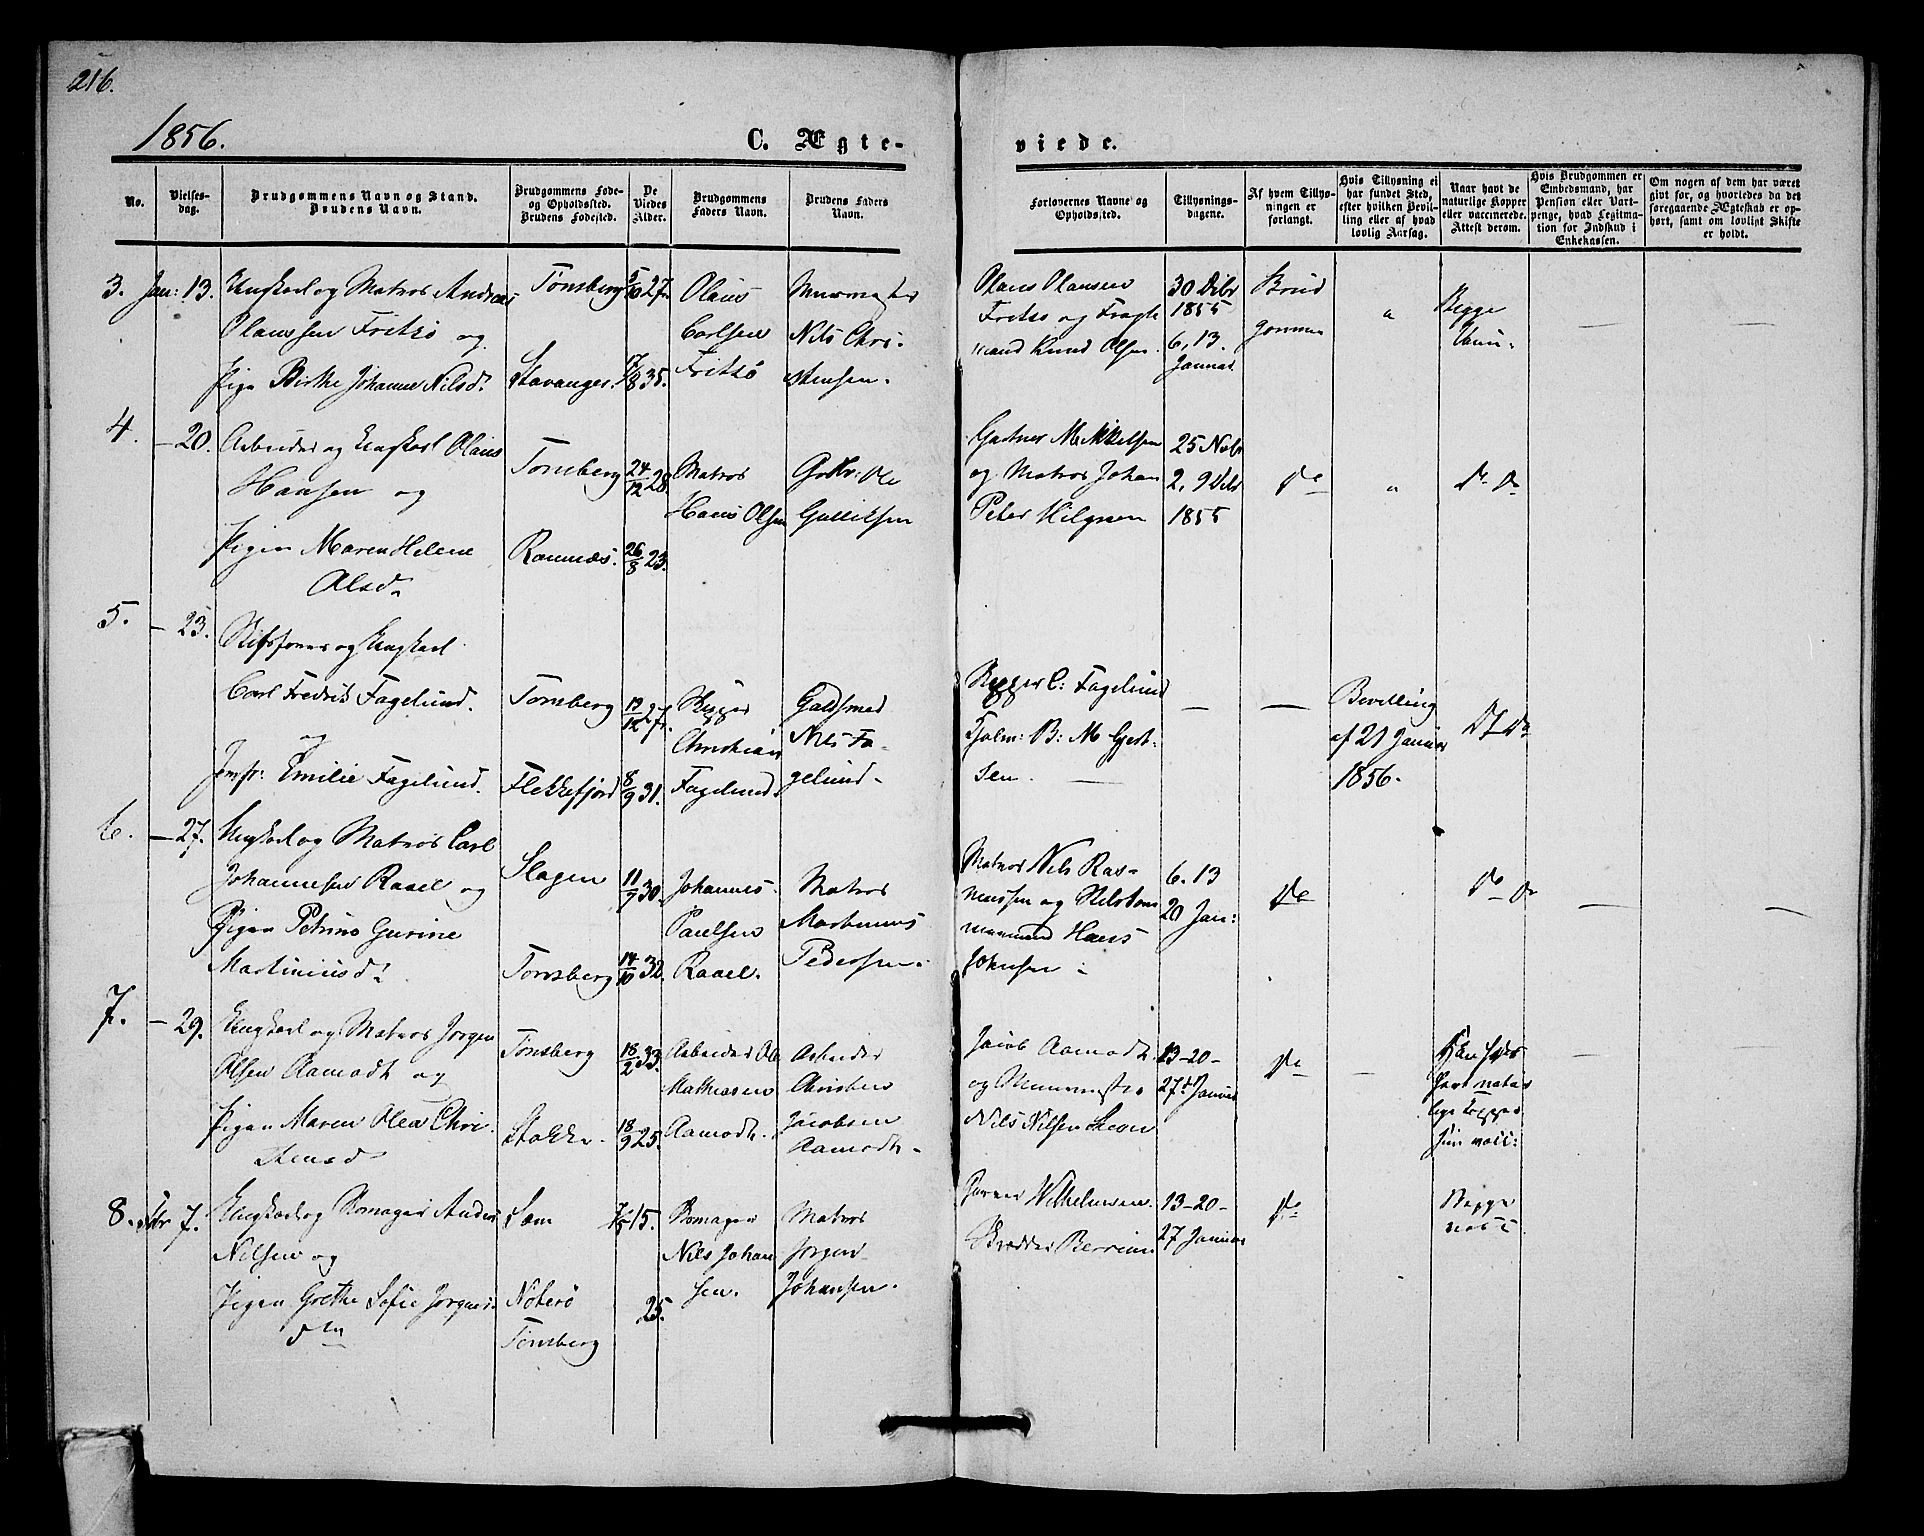 216.
1856.
C. Ægteviede.
No.
Vielsesdag.
Brudgommens Navn og Stand.
Brudens Navn.
Brudgommens Føde- og Opholdssted.
Brudens Fødested.
De Viedes Alder.
Brudgommens Faders Navn.
Brudens Faders Navn.
Forlovernes Navne og Opholdssted.
Tillysningsdagene.
Af hvem Tillysningen er forlangt.
Hvis Tillysning ei har fundet Sted, efter hvilken Bevilling eller af hvad lovlig Aarsag.
Naar havt de naturlige Kopper eller vaccinerede. Attest derom.
Hvis Brudgommen er Embedsmand, har Pension eller Vartpenge, hvad Legitimation for Indskud i Enkekassen.
Om nogen af dem har været givt før, og hvorledes da det foregaaende Ægteskab er ophørt, samt om lovligt Skifte er holdt.
3. Jan: 13. Ungkarl og Matros Andreas
Olaussen Fritzø og
Pigen Birthe Johanne Nilsd.
Tønsberg 5/10 27.
Stavanger. 17/8 35.
Olaus
Carlsen
Fritzø
Nils Chri-
stensen.
Olaus Olaussen
Fritzø og Fragt-
mand Knud Olsen.
30 Dcbr
1855
6, 13.
Januar
Brud
gommen
Begge
Vacc.
4. – 20. Arbeider og Ungkarl Olaus
Hansen og
Pigen Maren Helene
Olsd.
Tønsberg 24/12 28.
Ramnæs. 26/8 23.
Matros
Hans Olsen
Ole
Gulliksen
Gartner M. Mikkelsen
og Matros Johan
Peter
25 Nobr
2, 9 Dcbr
1855
Do
Do Do
5. – 23.
og Ungkarl
Carl Fredrik Fagelund.
og
Jomfr: Emilie Fagelund.
Tønsberg 19/12 27.
Flekkefjord 8/9 31.
Christian
Fagelund.
Guldsmed
Nils Fa-
gelund.
C: Fagelund
B: M
sen.
Bevilling
af 21 Januar
1856.
Do Do
6. – 27. Ungkarl og Matros Carl
Johannesen Raael og
Pigen Petrine Gurine
Martiniusd.
Slagen 11/9 30.
Tønsberg 14/10 32.
Johannes
Paulsen
Raael.
Matros
Martinius
Pedersen.
Matros Nils Ras-
mussen og
Hans
Johnsen
6. 13
20 Jan:
Do
Do Do
7. – 29. Ungkarl og Matros Jørgen
Olsen Aamodt og
Pigen Maren Olea Chri-
stensd.
Tønsberg 18/2 33.
Stokke. 18/9 25.
Arbeider Ole
Mathiasen
Aamodt.
Arbeider
Christen
Jacobsen
Aamodt.
Jacob Aamodt
og
Nils Nilsen
13–20–
27de Januar
Do
havt natur
lige Kopper
hun vacc:
8. Fbr 7. Ungkarl og Romager Anders
Nilsen og
Pigen Grethe Sofie Jørgens-
datter
Sem
Nøterø
Tønsberg
25.
Romager
Nils Johan
sen.
Matros
Jørgen
Johansen.
Wilhelmsen
13–20–
27 Januar
Do
Begge
vacc.